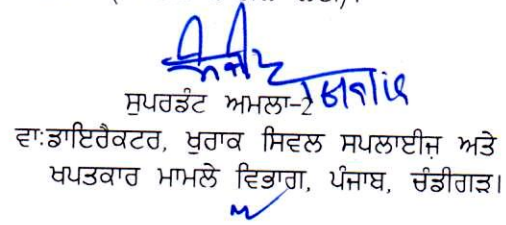 ਸੁਪਰਡੰਟ ਅਮਲਾ-2
ਵਾ:ਡਾਇਰੈਕਟਰ, ਖੁਰਾਕ ਸਿਵਲ ਸਪਲਾਈਜ਼ ਅਤੇ
ਖਪਤਕਾਰ ਮਾਮਲੇ ਵਿਭਾਗ, ਪੰਜਾਬ, ਚੰਡੀਗੜ।